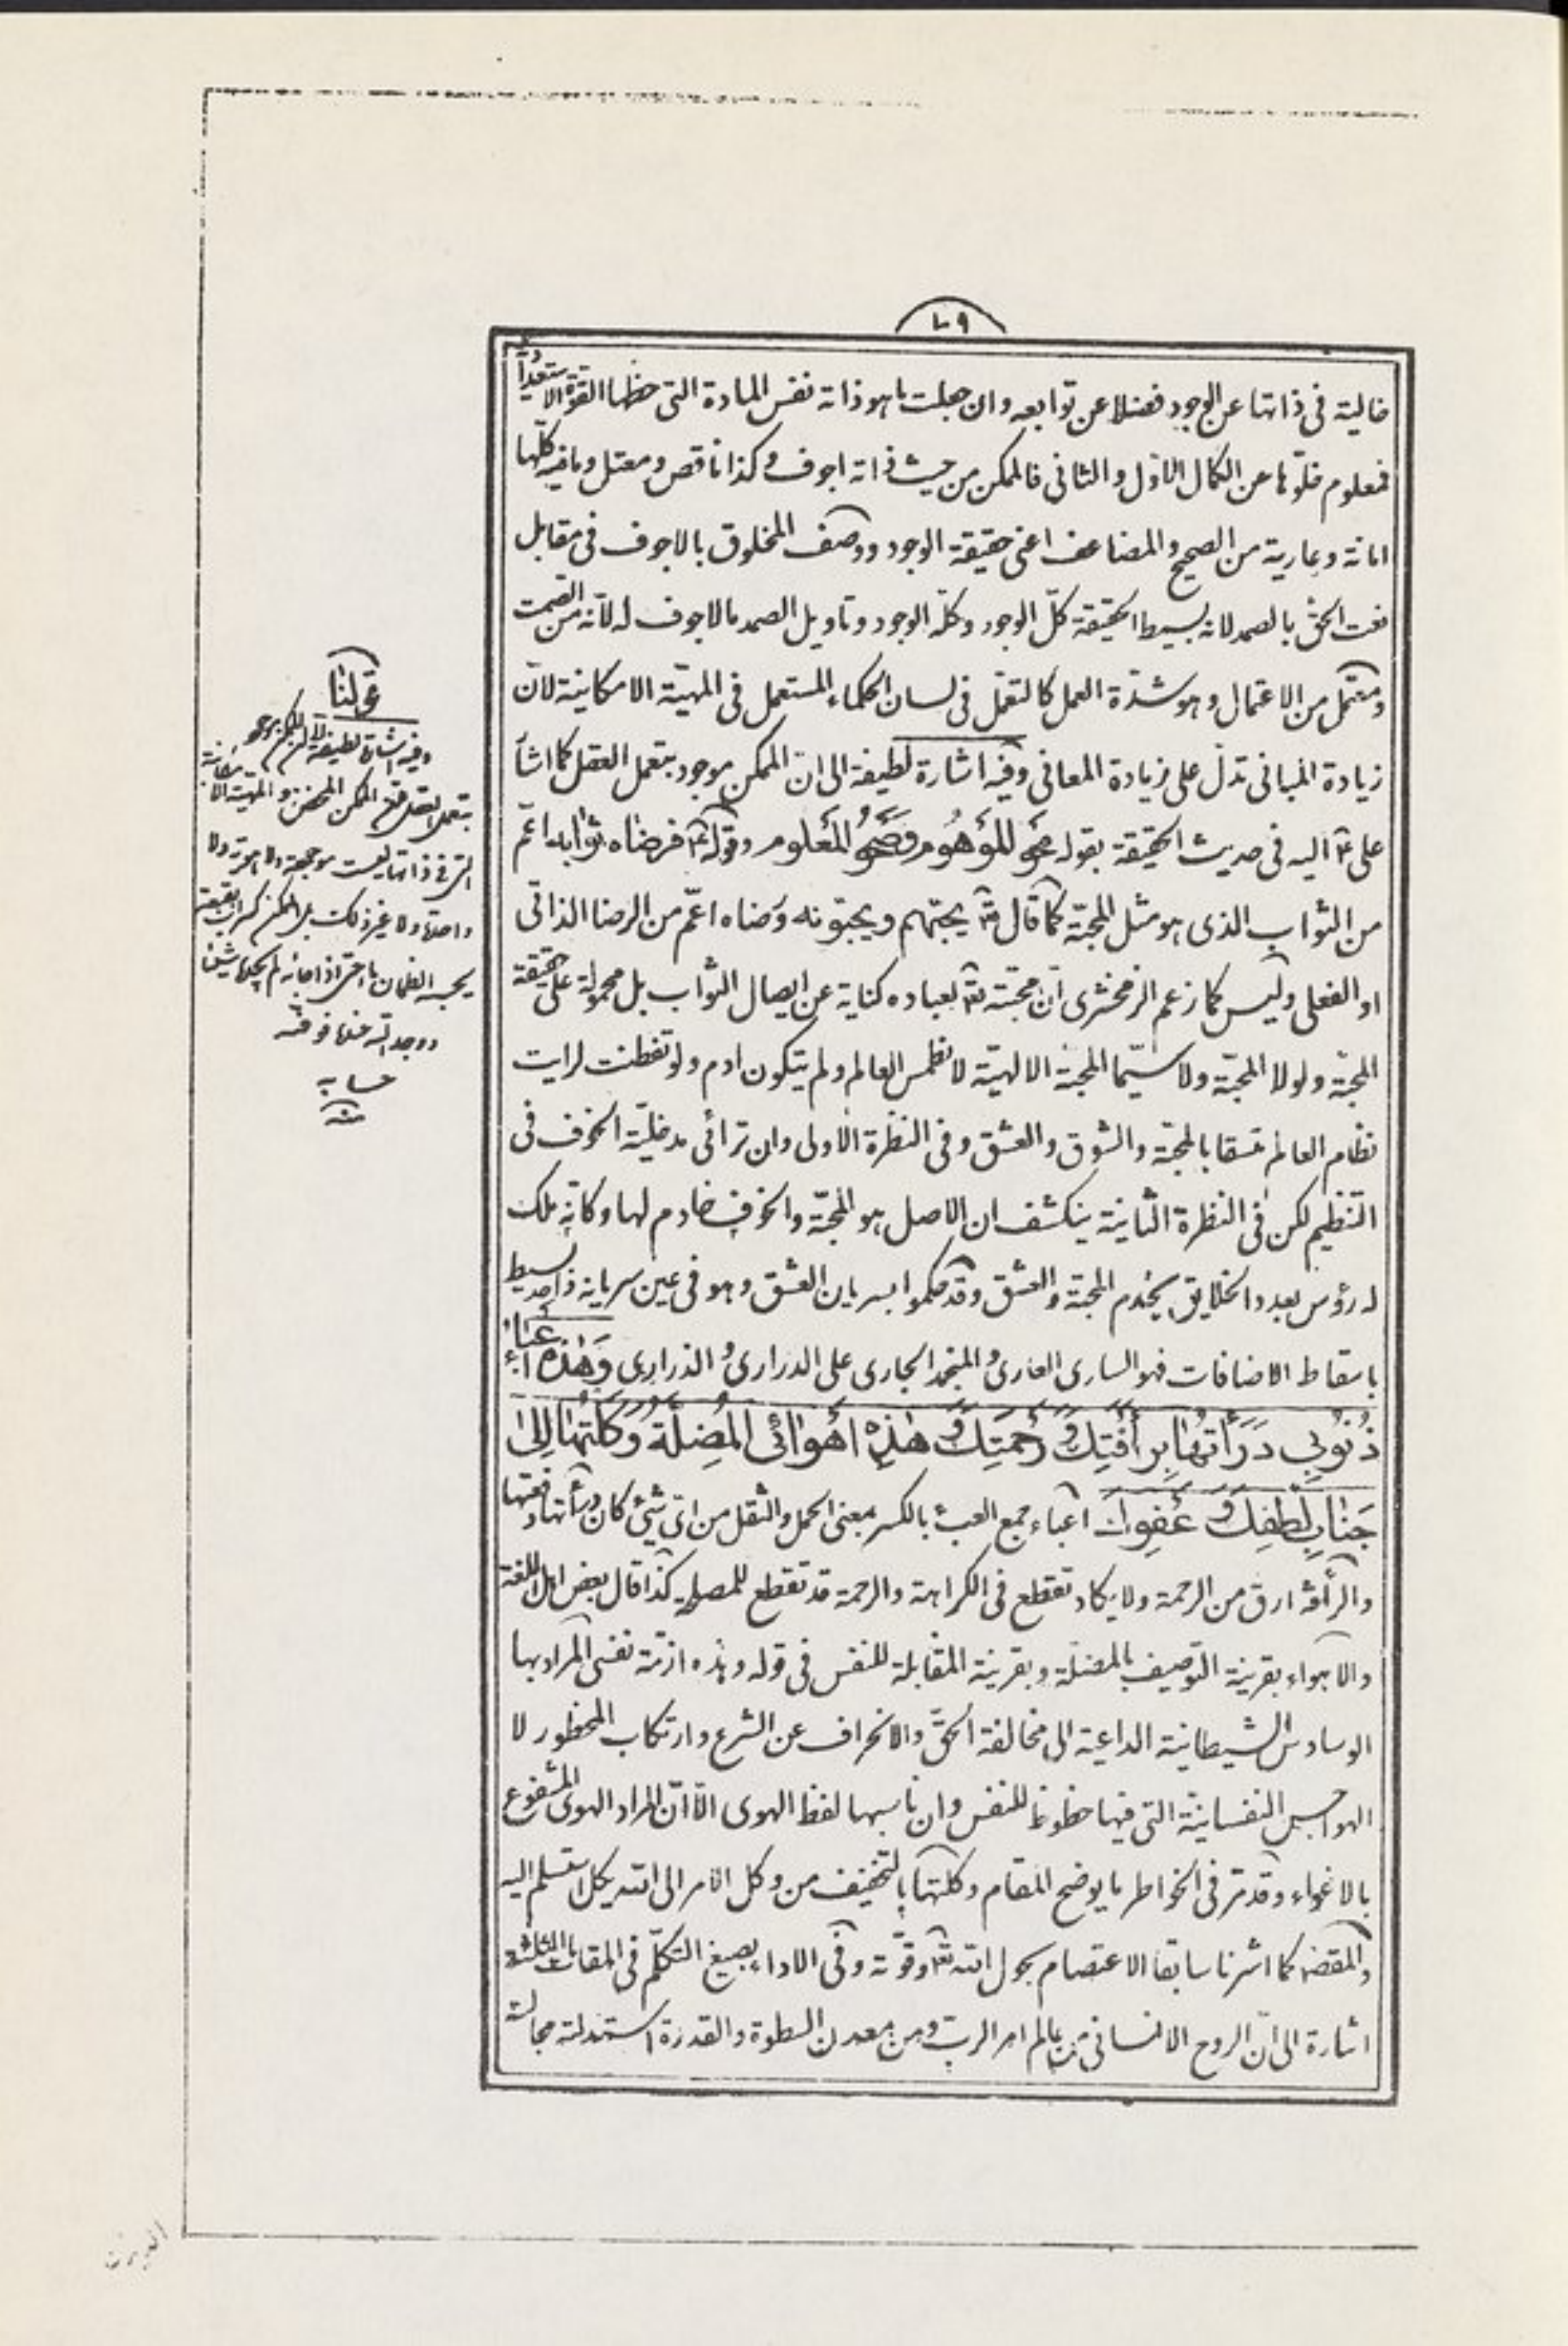 ٧٩
خالية فى ذاتها عن الوجود فضلا عن توابعه وان جعلت ما هو ذاته نفس المادة التى حظها القوة الاستعداد
فمعلوم خلوّها عن الكمال الاوّل والثانى فالممكن من حيث ذاته اجوف وكذا ناقص ومعتل وما فيه كلّها
امانة وعارية من الصحيح والمضاعف اعنى حقيقة الوجود ووصف المخلوق بالاجوف فى مقابل
نعت الحقّ بالصمد لانه بسيط الحقيقة كلّ الوجود وكلّه الوجود وتاويل الصمد مالاجوف له لانّه من الصمت
ومعتمل من الاعتمال وهو شدّة العمل كالتعمّل فى لسان الحكماء المستعمل فى المهيّة الامكانية لانّ
زيادة المبانى تدلّ على زيادة المعانى وفيه اشارة لطيفة الى ان الممكن موجود بتعمل العقل كما اشار
على ع اليه فى حديث الحقيقة بقوله محو الموهوم وصحو المعلوم وقوله ع فرضاه ثوابه اعم
من الثواب الذى هو مثل المحبّة كما قال تع يحبّهم ويحبّونه ورضاه اعمّ من الرضا الذاتى
او الفعلى وليس كما زعم الزمخشرى انّ محبّته تع لعباده كناية عن ايصال الثواب بل محمولة على حقيقة
المحبّة ولولا المحبّة ولا سيّما المحبة الالهيّة لانطمس العالم ولم يتكون ادم ولو تفطنت لرايت
نظام العالم متسقا بالمحبّة والشوق والعشق وفى النظرة الاولى وان ترائى مدخليّة الخوف فى
التنظيم لكن فى النظرة الثانية ينكشف ان الاصل هو المحبّة والخوف خادم لها وكانّه ملك
له رؤس بعدد الخلايق يخدم المحبّة والعشق وقد حكموا بسريان العشق وهو فى عين سريانه واحد بسيط
باسقاط الاضافات فهو السارى العارى والمتجمد الجارى على الدرارى والذرارى وَهٰذِهِ اَعْبَاءُ
ذُنُوبِى دَرَأْتُهَا بِرَأْفَتِكَ وَرَحْمَتِكَ وَهٰذِهِ اَهْوَائِى الْمُضِلَّةُ وَكَلْتُهَا اِلىٰ
جَنَابِ لُطْفِكَ وَعَفْوِكَ اعباء جمع العبء بالكسر بمعنى الحمل والثقل من اىّ شىء كان ودرأتها دفعتها
والرأفة ارق من الرحمة ولا يكاد تقطع فى الكراهة والرحمة قد تقطع للمصلحة كذا قال بعض اهل اللغة
والاهواء بقرينة التوصيف بالمضلّة وبقرينة المقابلة للنفس فى قوله وهذه ازمّة نفسى المراد بها
الوساوس الشيطانية الداعية الى مخالفة الحقّ والانحراف عن الشرع وارتكاب المحظور لا
الهواجس النفسانيّة التى فيها حظوظ للنفس وان ناسبها لفظ الهوى الّا انّ المراد الهوى المشفوع
بالاغواء وقد مرّ فى الخواطر ما يوضح المقام وكلتها بالتخفيف من وكل الامر الى الله يكل سلم اليه
والمقصد كما اشرنا سابقا الاعتصام بحول الله تع وقوّته وفى الاداء بصيغ التكلّم فى المقامات الثلثة
اشارة الى انّ الروح الانسانى من عالم امر الربّ ومن معدن السطوة والقدرة استدلته مجالسة
قولنا
وفيه اشارة لطيفة الى ان الممكن موجود
بتعمل العقل الممكن المحض هو المهية الامكانية
التى فى ذاتها ليست موجودة ولا معدومة ولا
واحدة ولا غير ذلك بل الممكن كسراب بقيعة
يحسبه الظمآن ماء حتى اذا جاءه لم يجده شيئا
ووجد الله عنده فوفّيه
حسابه
منه